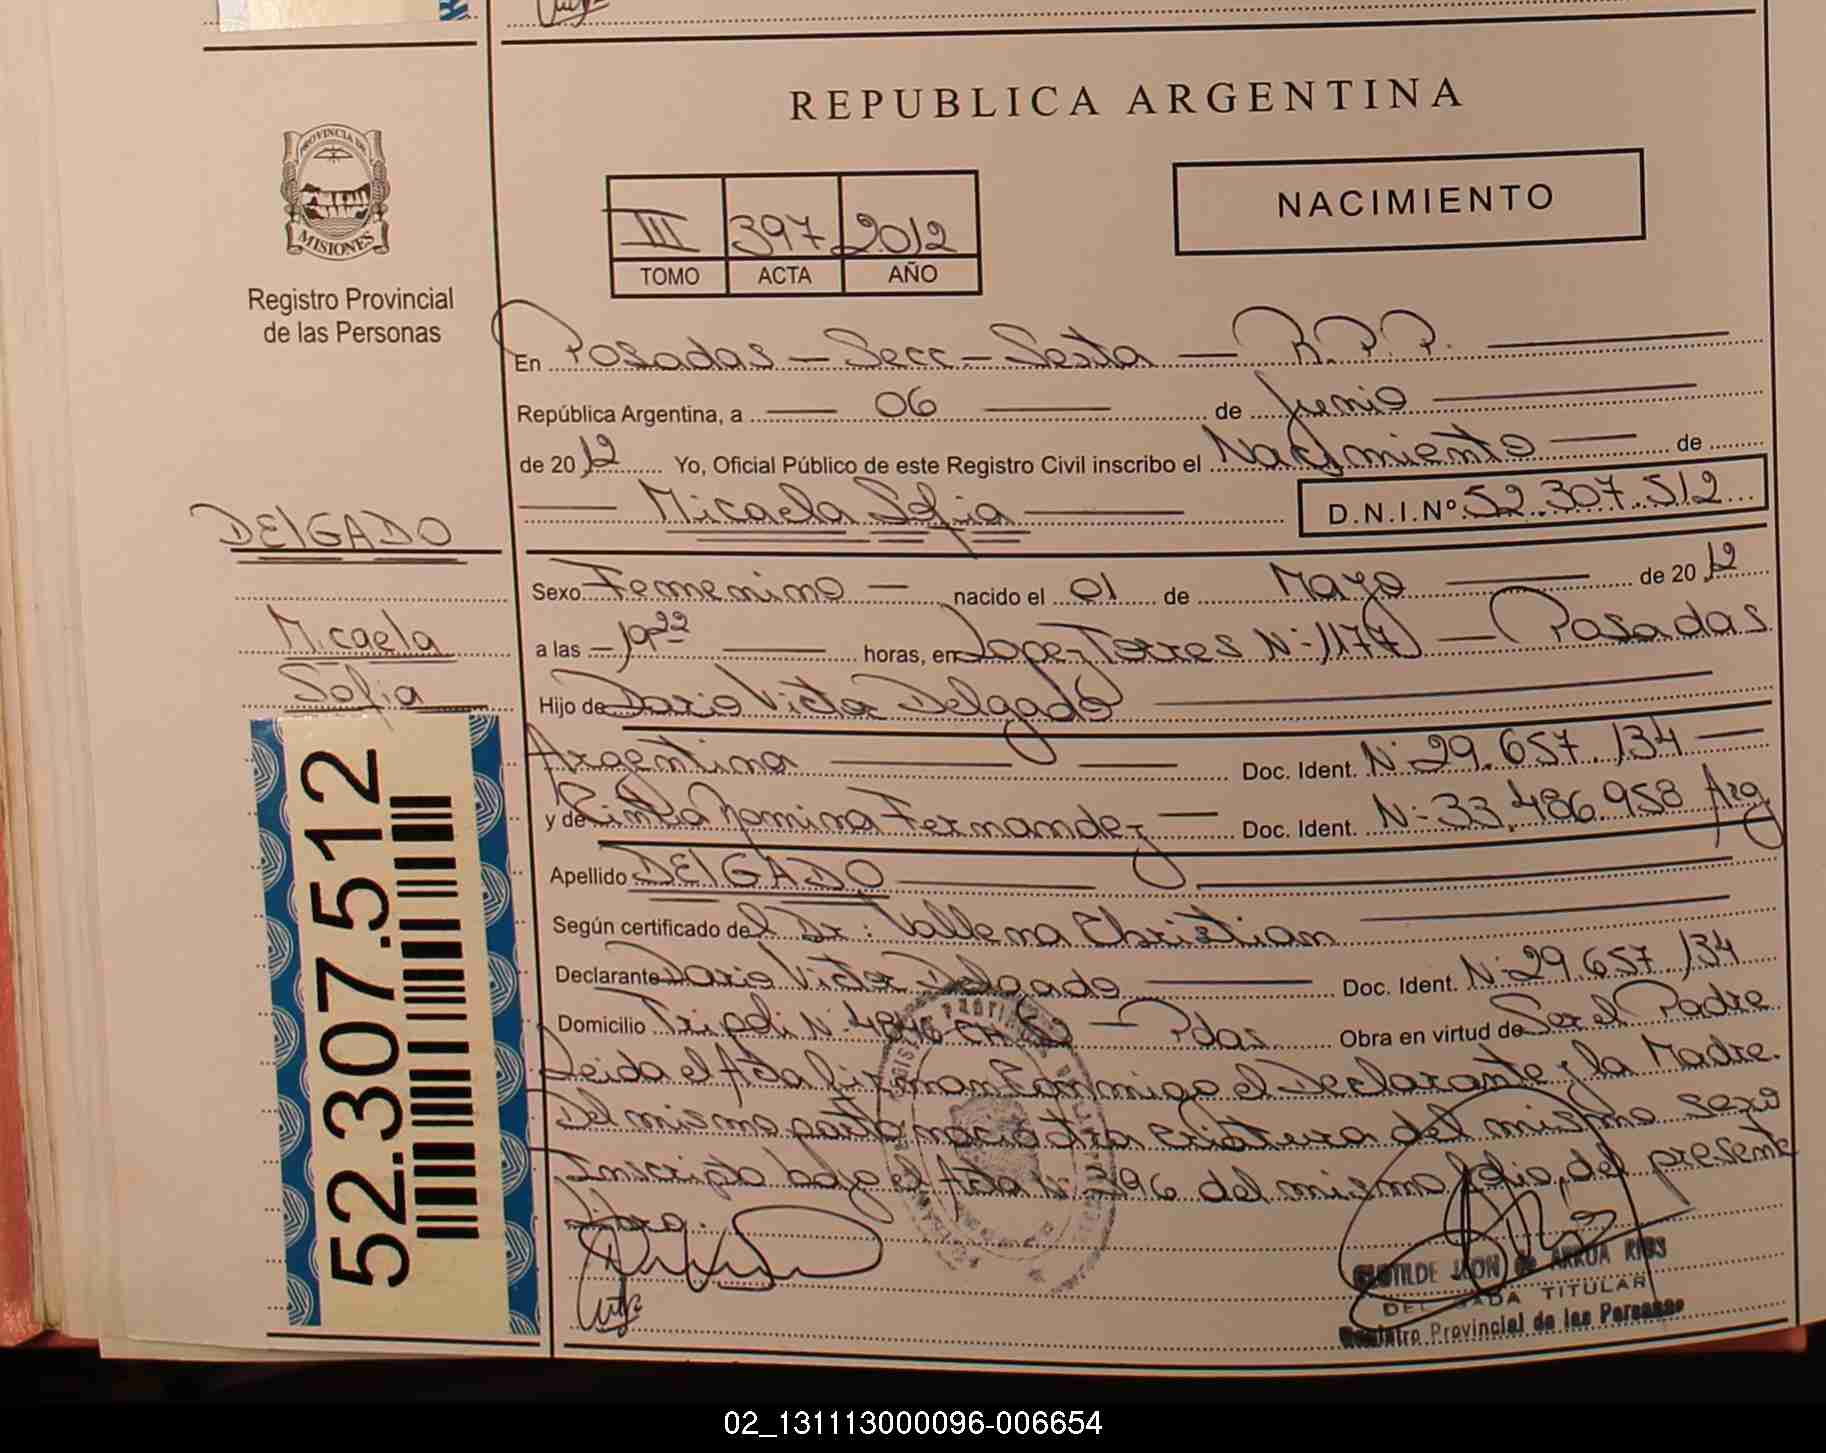 PROVINCIA DE
MISIONES
Registro Provincial
de las Personas
REPUBLICA ARGENTINA
III 397 2012
TOMO ACTA AÑO
NACIMIENTO
En Posadas - Secc - Sexta - R.P.P.
República Argentina, a 06 de Junio
de 2012 Yo, Oficial Público de este Registro Civil inscribo el Nacimiento de
Micaela Sofia D.N.I.Nº 52.307.512
DELGADO
Micaela
Sofia
52.307.512
Sexo Femenino nacido el 01 de Mayo de 2012
a las 19 22 horas, en Lopez Torres Nº 1177 - Posadas
Hijo de Dario Victor Delgado
Argentina Doc. Ident. Nº 29.657.134
y de Yamina Fernandez Doc. Ident. Nº 33.486.958 Arg
Apellido DELGADO
Según certificado del Dr: Vallena Christian
Declarante Dario Victor Delgado Doc. Ident. Nº 29.657.134
Domicilio Tripoli Nº 4846 CH - Pdas Obra en virtud de Ser el Padre
Leida el Acta firman Conmigo el Declarante y la Madre.
Del mismo parto nacio otra criatura del mismo sexo
Inscripto bajo el Acta Nº 396 del mismo del presente
libro.
CLOTILDE DE ARRUA RIOS
DELEGADA TITULAR
Registro Provincial de las Personas
02_131113000096-006654